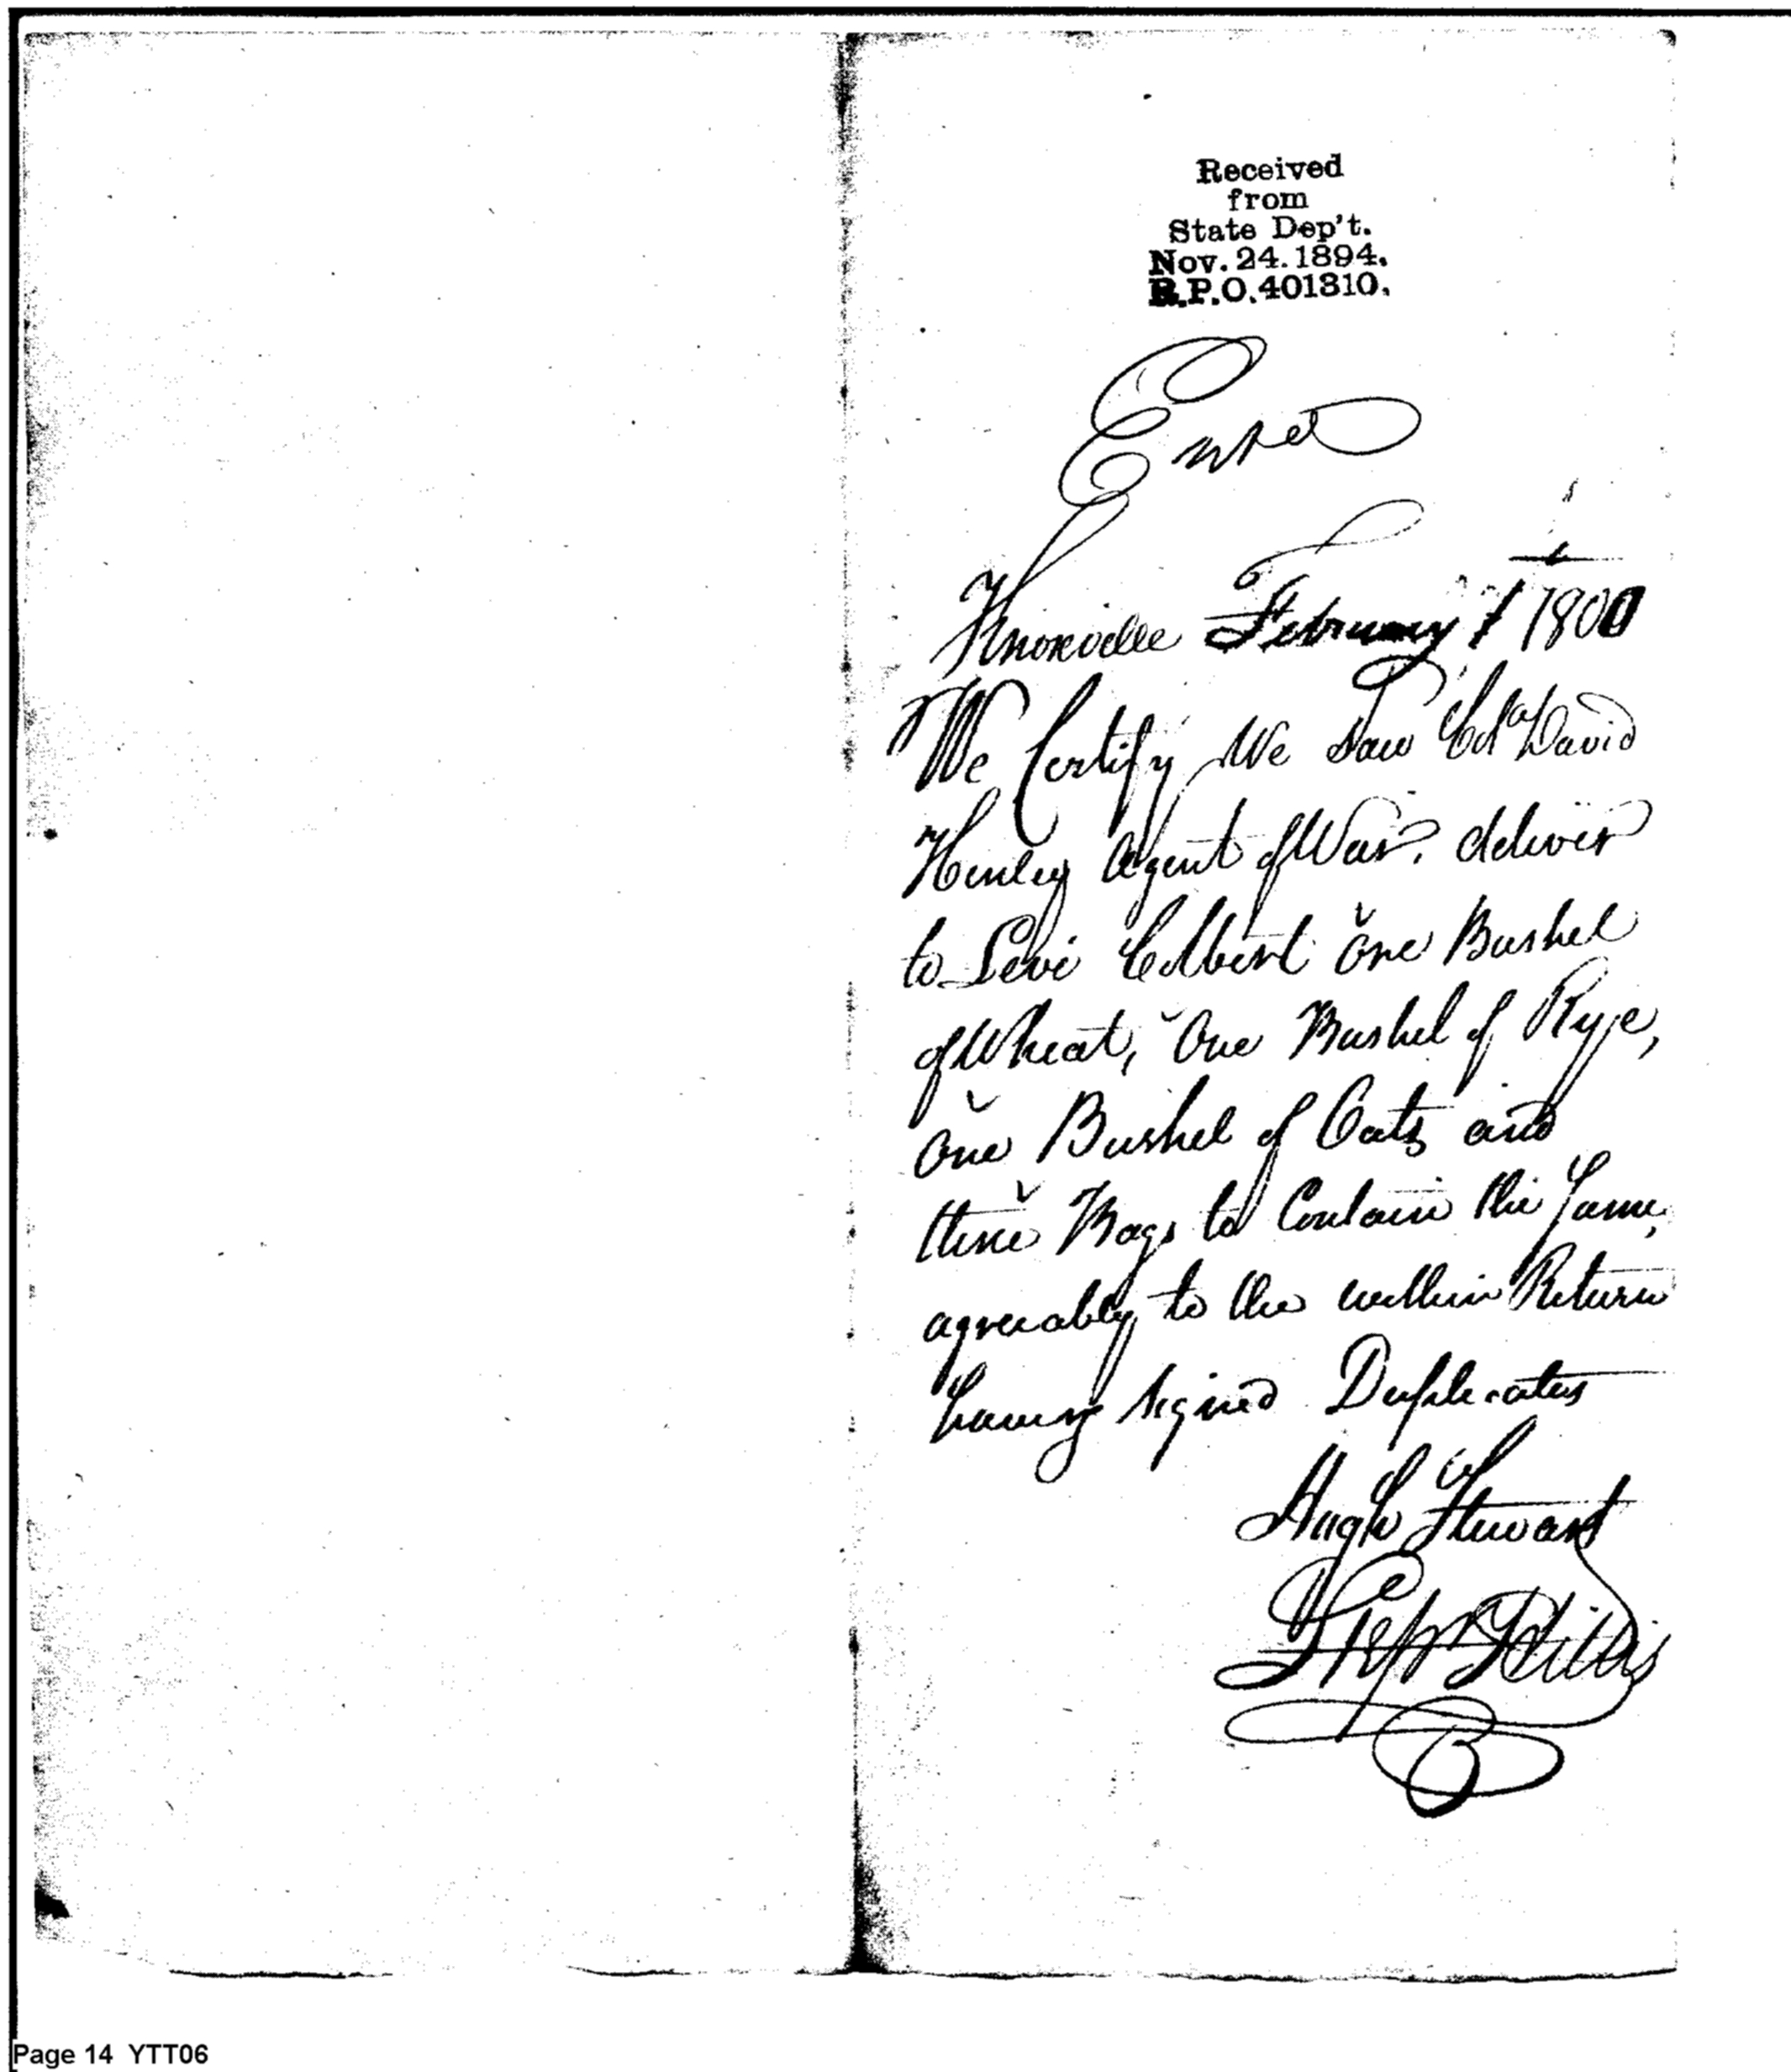 Received
from
State Dep't.
Nov. 24. 1894.
R.P.O. 401310.
Ent'd
Knoxville February 1 1800
We Certify We Saw Col David
Henley Agent of War. deliver
to Levi Colbert One Bushel
of Wheat, One Bushel of Rye,
One Bushel of Oats and
three Bags to Contain the Same,
agreeably to the within Return
having Signed Duplicates
Hugh Stewart
Step Hillis
Page 14 YTT06